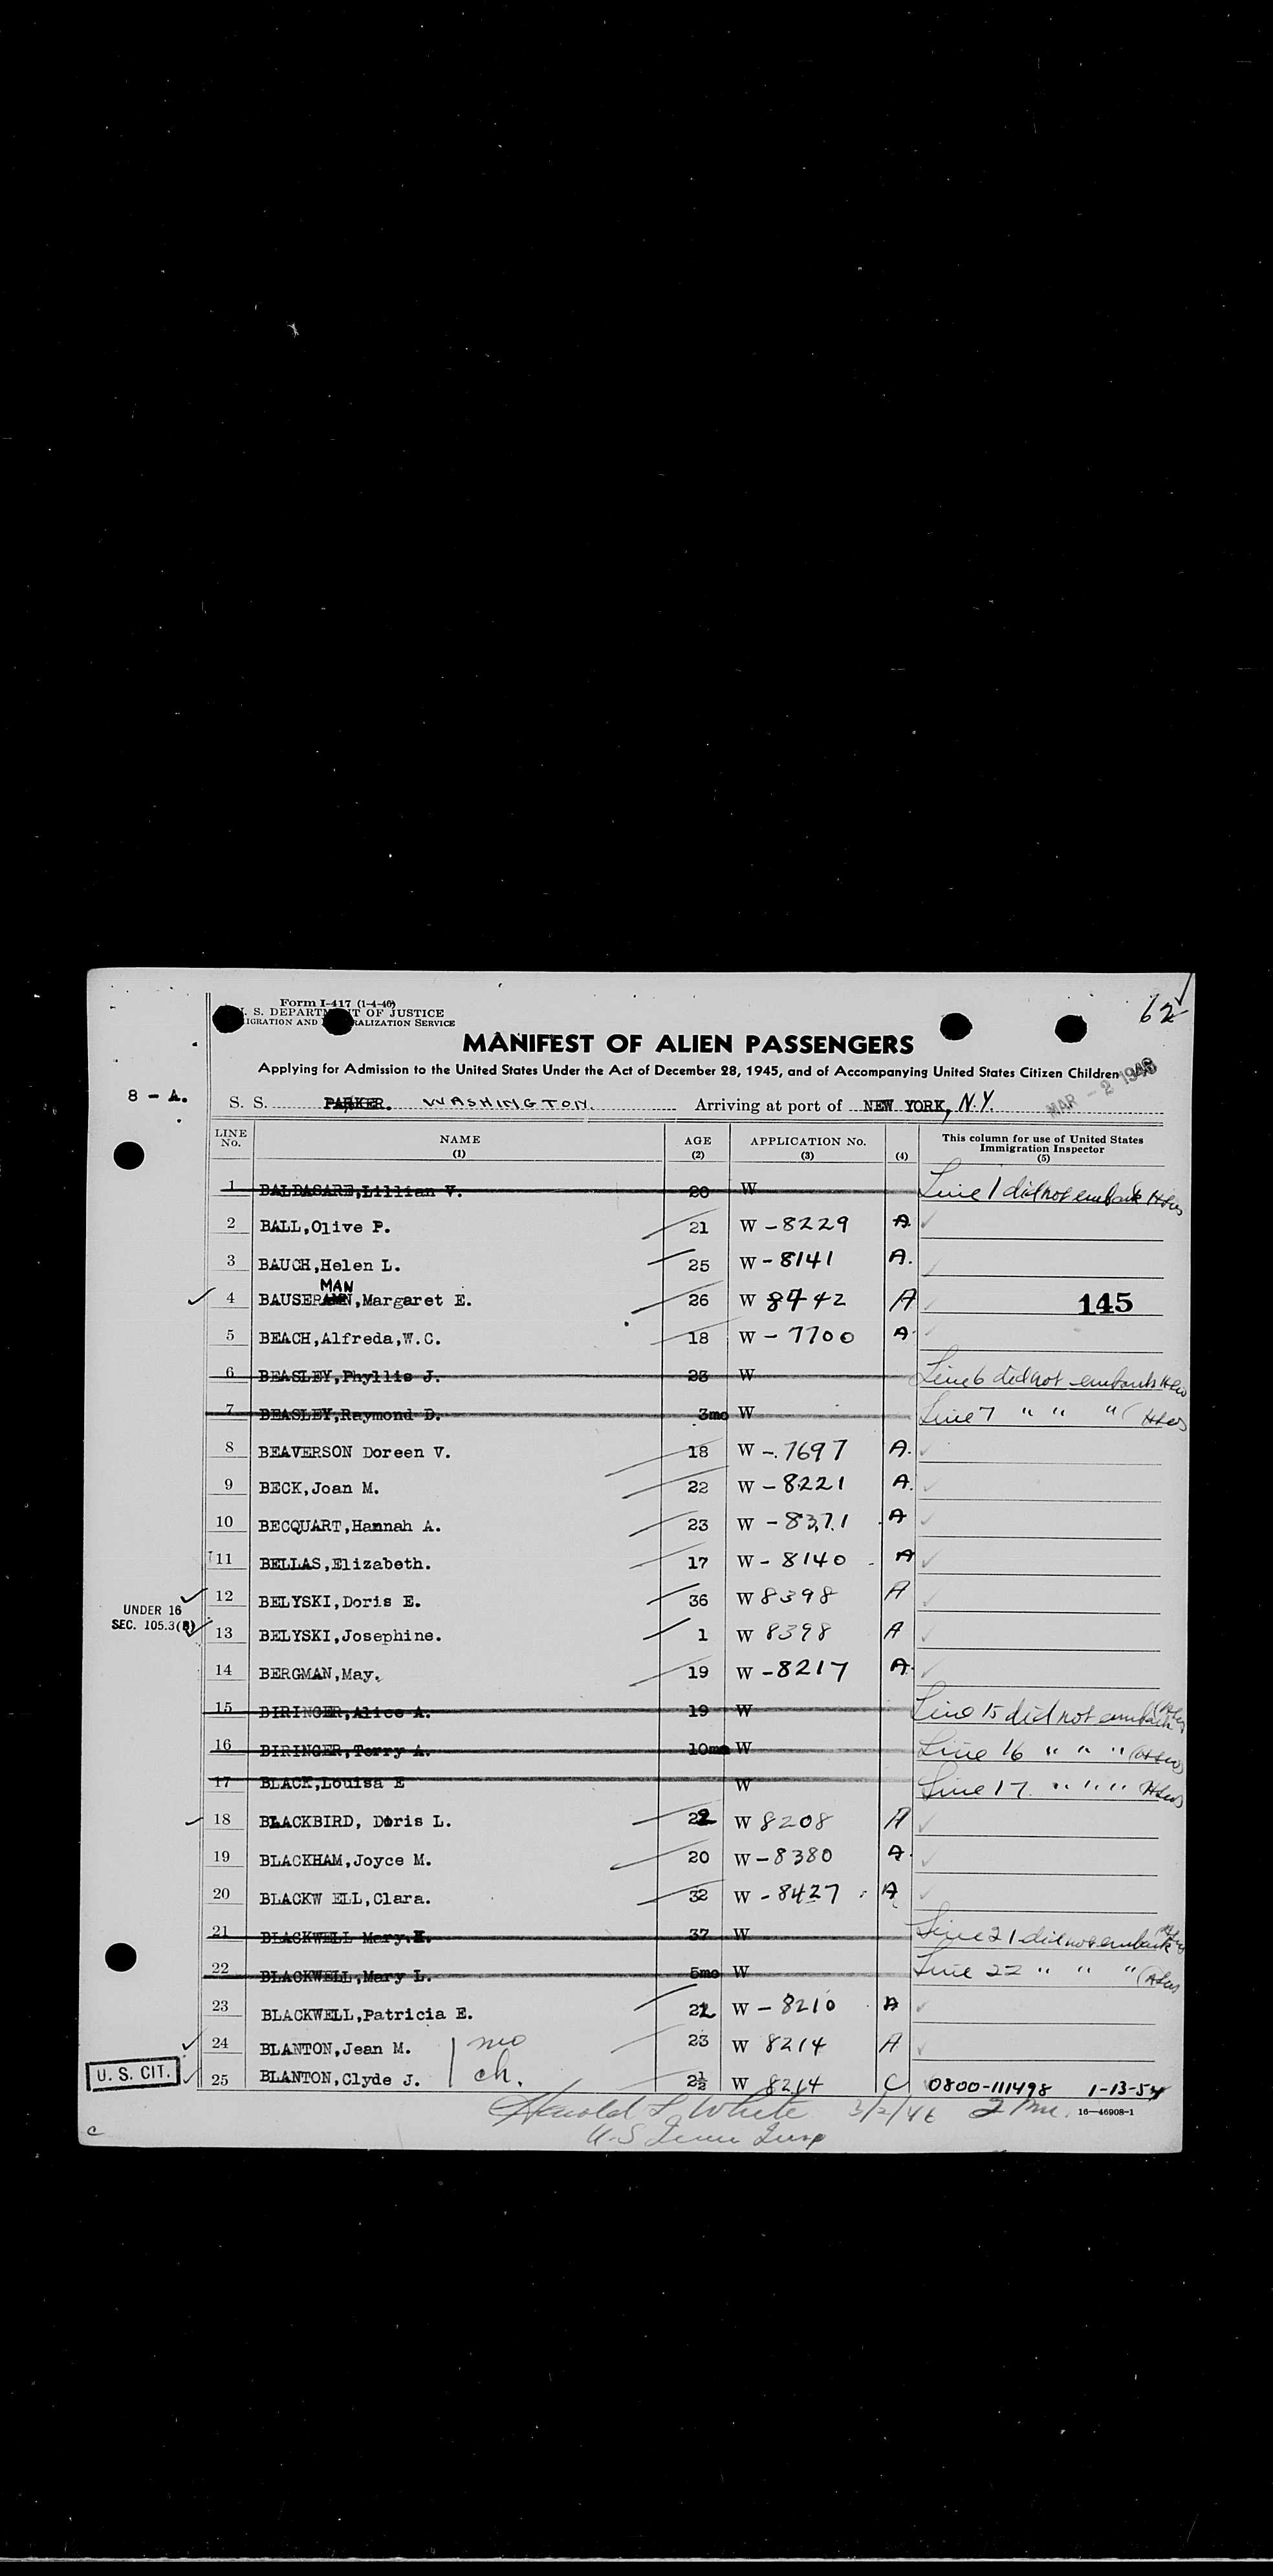 62
Form I-417 (1-4-46)
U. S. DEPARTMENT OF JUSTICE
IMMIGRATION AND NATURALIZATION SERVICE
MANIFEST OF ALIEN PASSENGERS
Applying for Admission to the United States Under the Act of December 28, 1945, and of Accompanying United States Citizen Children
MAR - 2 1946
8 - A. S. S. PARKER. WASHINGTON. Arriving at port of NEW YORK, N.Y.
LINE No. NAME (1) AGE (2) APPLICATION No. (3) (4) This column for use of United States Immigration Inspector (5)
1 BALDASARE,Lillian V. 20 W Line 1 did not embark
2 BALL,Olive P. 21 W - 8229 A
3 BAUCH,Helen L. 25 W - 8141 A.
4 BAUSERMAN,Margaret E. 26 W 8742 A 145
5 BEACH,Alfreda,W.C. 18 W - 7700 A
6 BEASLEY,Phyllis J. 23 W Line 6 did not embark
7 BEASLEY,Raymond D. 3mo W Line 7 " " "
8 BEAVERSON Doreen V. 18 W - 7697 A.
9 BECK,Joan M. 22 W - 8221 A.
10 BECQUART,Hannah A. 23 W - 8371 A
11 BELLAS,Elizabeth. 17 W - 8140 A
12 BELYSKI,Doris E. 36 W 8398 A
UNDER 16
SEC. 105.3(B)
13 BELYSKI,Josephine. 1 W 8398 A
14 BERGMAN,May. 19 W - 8217 A.
15 BIRINGER,Alice A. 19 W Line 15 did not embark
16 BIRINGER,Terry A. 10mo W Line 16 " " "
17 BLACK,Louisa E W Line 17 " " " "
18 BLACKBIRD, Doris L. 22 W 8208 A
19 BLACKHAM,Joyce M. 20 W - 8380 A.
20 BLACKW ELL,Clara. 32 W - 8427 A
21 BLACKWELL Mary.K. 37 W Line 21 did not embark
22 BLACKWELL,Mary L. 5mo W Line 22 " " "
23 BLACKWELL,Patricia E. 22 W - 8210 A
24 BLANTON,Jean M. mo 23 W 8214 A
U. S. CIT. 25 BLANTON,Clyde J. ch. 2½ W 8214 C 0800-111498 1-13-54
Harold L White 3/2/46 16-46908-1
U.S Imm Insp
c